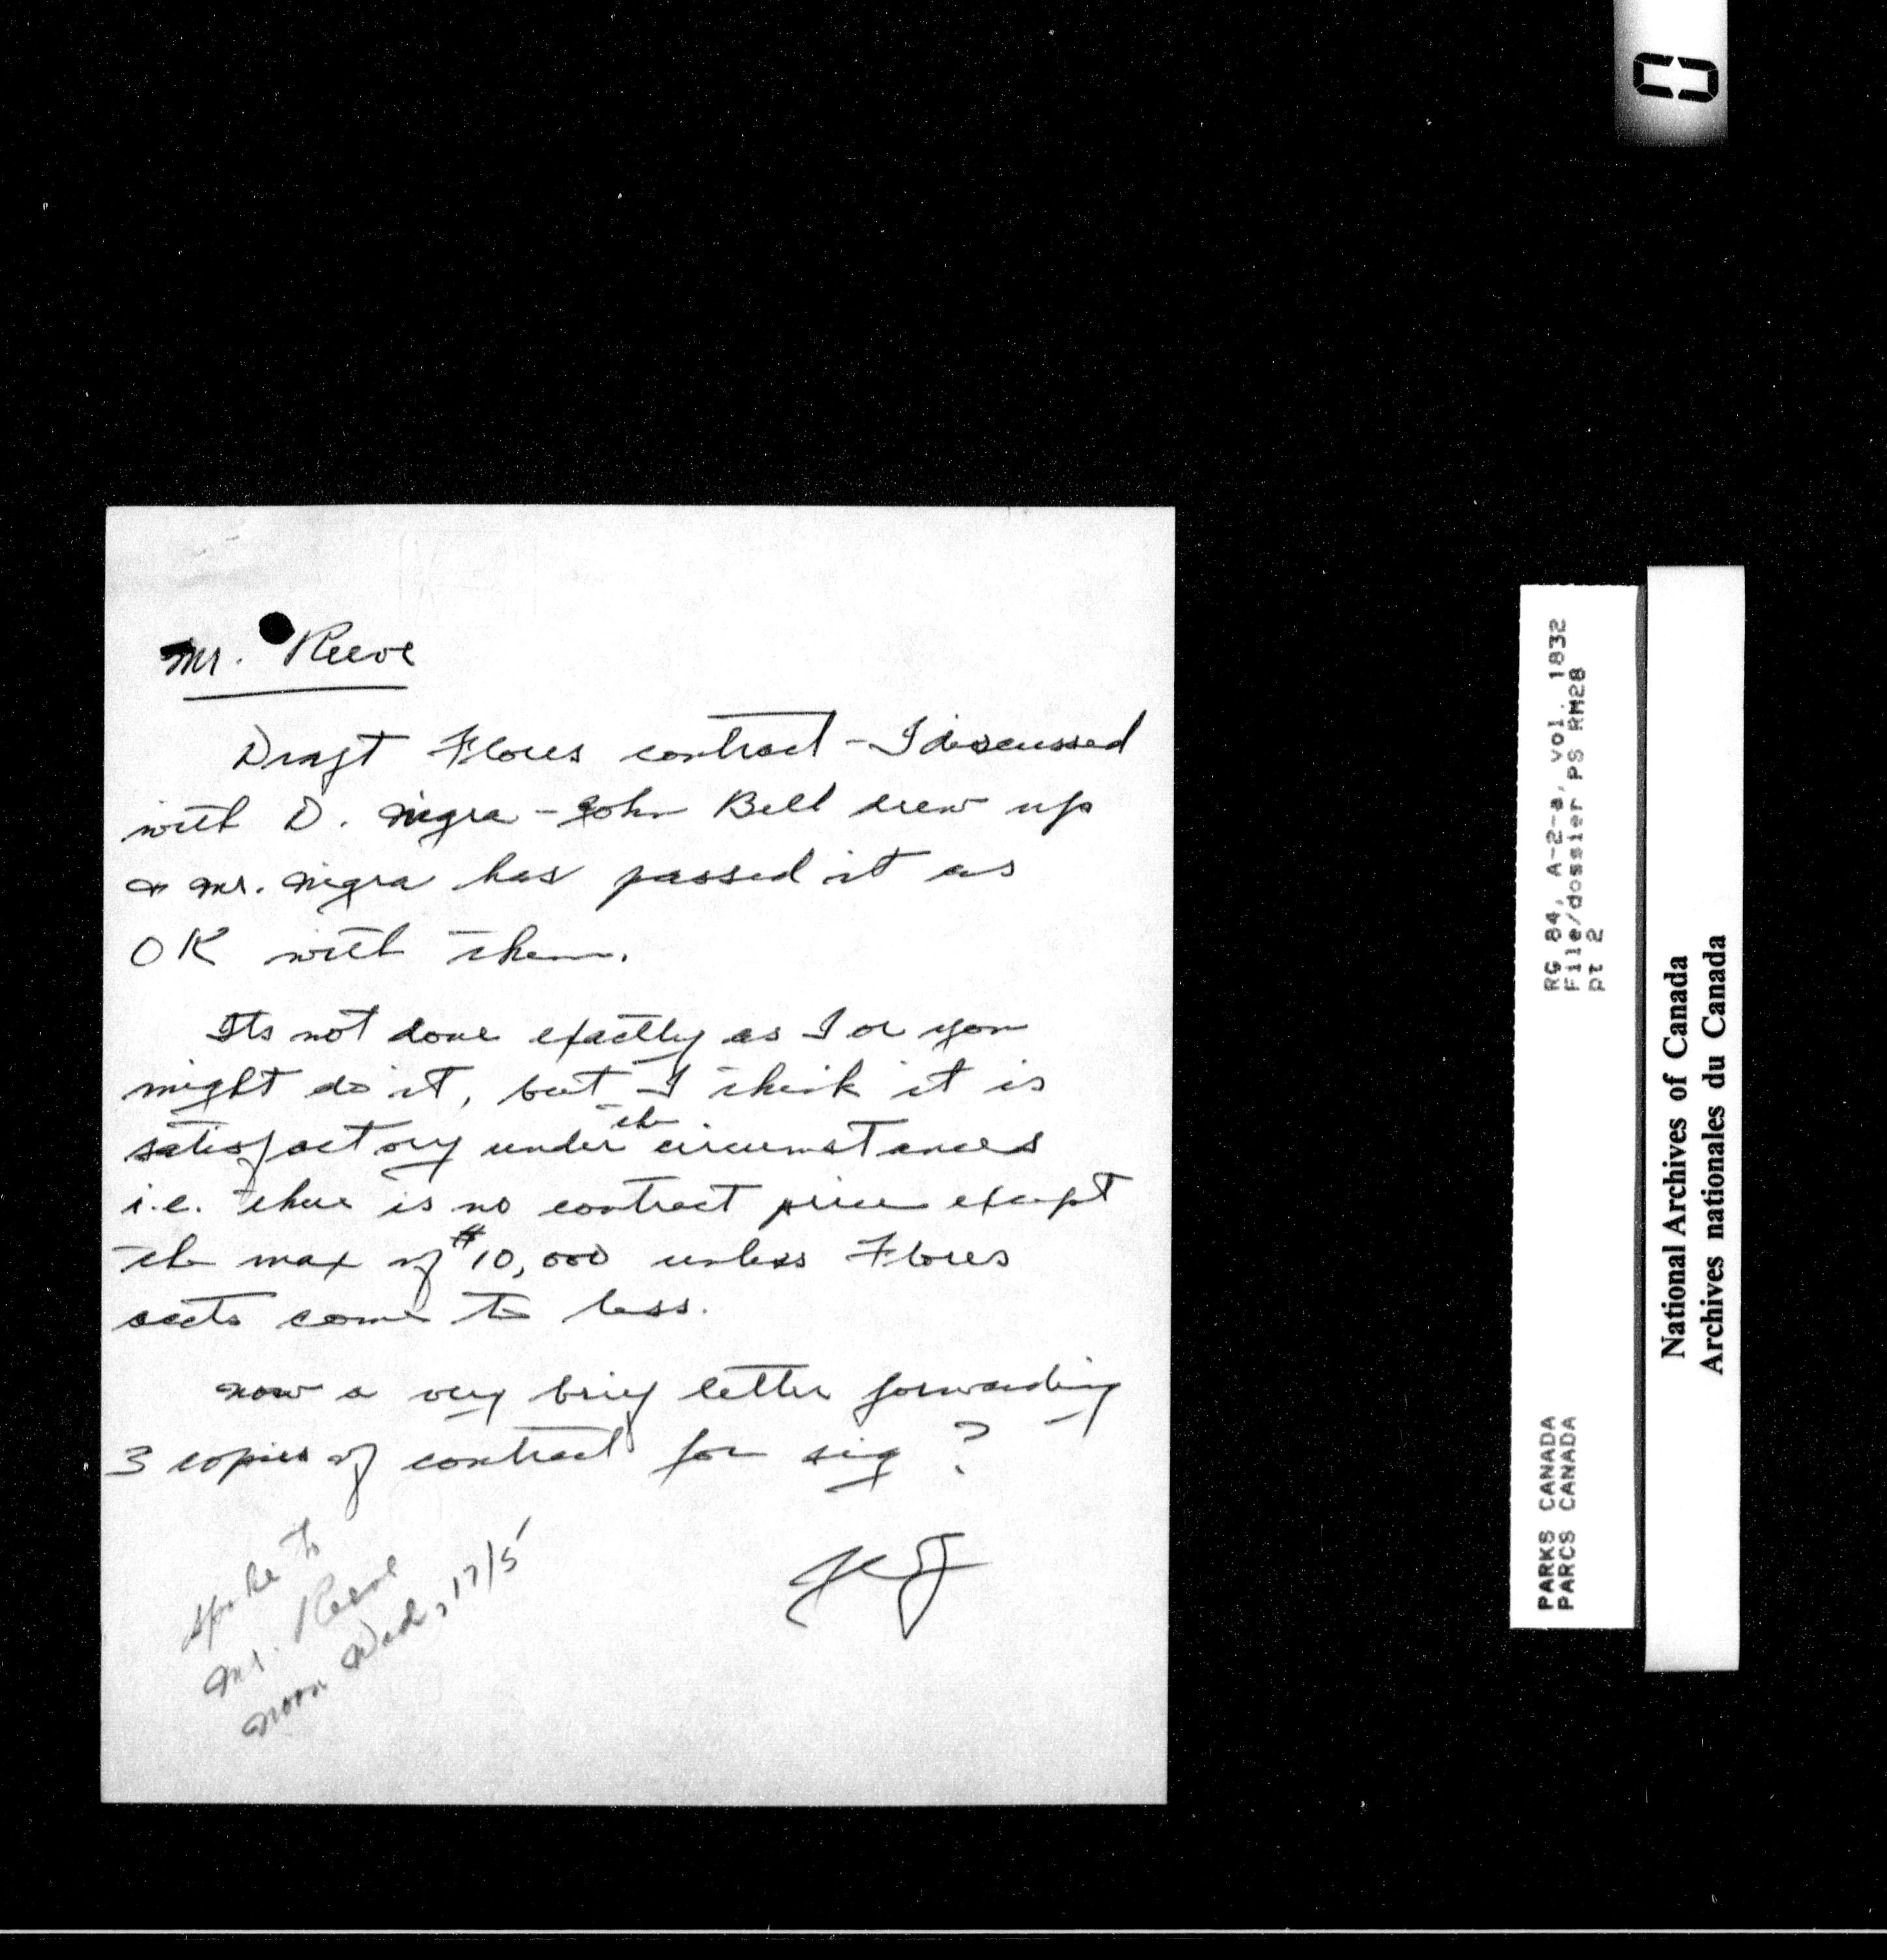 Mr. Reeve
Draft Flores contract - I discussed
with D. Nigra - John Bell drew up
& Mr. Nigra has passed it as
OK with them.
Its not done exactly as I or you
might do it, but I think it is
satisfactory under the circumstances
i.e. there is no contract price except
the max of $10,000 unless Flores
accts come to less.
Now a very brief letter forwarding
3 copies of contract for sig?
Spoke to
Mr. Reeve
noon Wed, 17/5
RG 84, A-2-a, vol. 1832
File/dossier PS RM28
pt 2
PARKS CANADA
PARCS CANADA
National Archives of Canada
Archives nationales du Canada
0